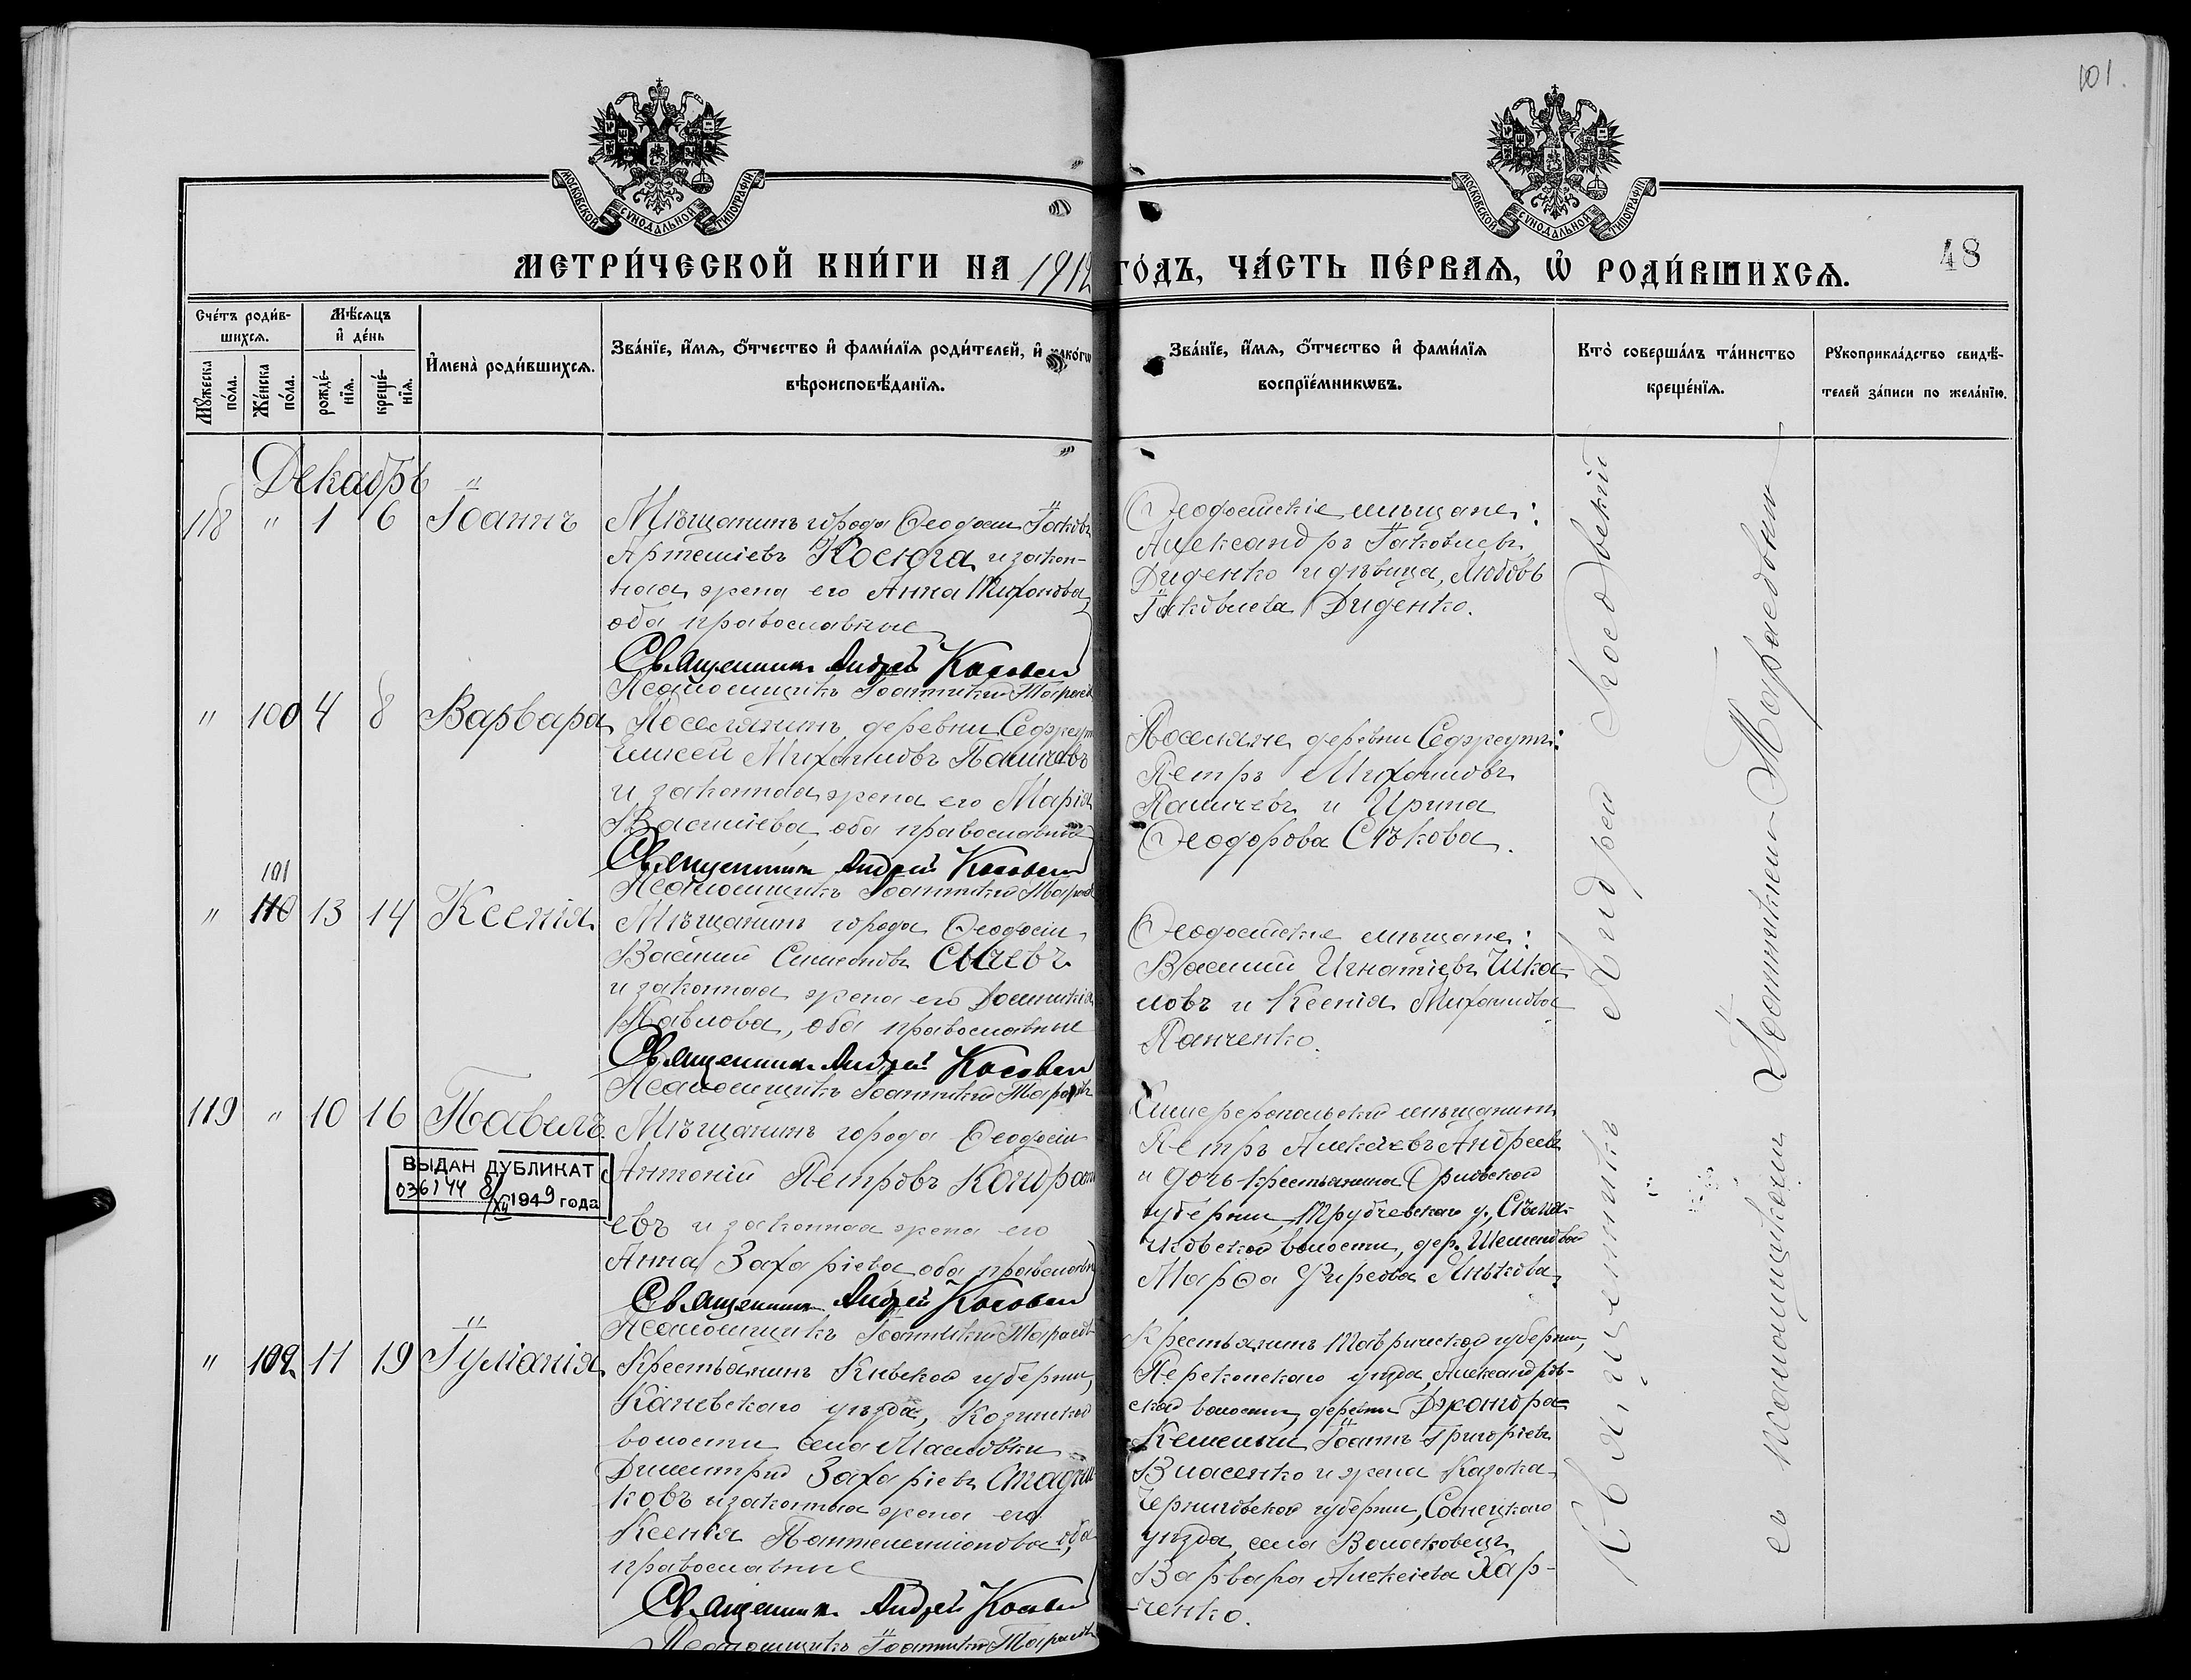 101.
МОСКОВСКОЙ СѴНОДАЛЬНОЙ ТИПОГРАФІИ
МОСКОВСКОЙ СѴНОДАЛЬНОЙ ТИПОГРАФІИ
МЕТРИ́ЧЕСКОЙ КНИ́ГИ НА 1912 ГО́ДЪ, ЧА́СТЬ ПЕ́РВАЯ, Ѡ҆ РОДИ́ВШИХСЯ.
48
Сче́тъ роди́в-
шихся.
Мꙋ́жеска по́ла.
Же́нска по́ла.
Мѣ́сяцъ
и҆ де́нь
рожде́-
нїя.
креще́-
нїя.
И҆мена̀ роди́вшихся.
Зва́нїе, и҆́мя, ѻ҆́тчество и҆ фами́лїя роди́телей, и҆ како́гѡ
вѣроисповѣ́данїя.
Зва́нїе, и҆́мя, ѻ҆́тчество и҆ фами́лїя
воспрїе́мникѡвъ.
Кто̀ соверша́лъ та́инство
креще́нїя.
Рꙋкоприкла́дство свидѣ́-
телей за́писи по жела́нїю.
Декабрь "
118 " 1 6 Іоаннъ
Мѣщанинъ города Ѳеодосіи Іаковъ
Артеміевъ Косюга и закон-
ная жена его Анна Тихонова,
оба православные
Священникъ Андрей Косовскій
Псаломщикъ Іоанникій Тараев
Ѳеодосійскіе мѣщане:
Александръ Іаковлевъ
Диденко и дѣвица Любовь
Іаковлева Диденко.
" 100 4 8 Варвара
Поселянинъ деревни
Михаиловъ Паличевъ
и законная жена его Марія
Василіева, оба православные
Священникъ Андрей Косовскій
Псаломщикъ Іоанникій Тараев
Поселяне деревни
Петръ Михаиловъ
Паличевъ и Ирина
Ѳеодорова Сѣкова.
101
" 110 13 14 Ксенія
Мѣщанинъ города Ѳеодосіи
Василій Симеоновъ Сычевъ
и законная жена его Домникія
Павлова, оба православные
Священникъ Андрей Косовскій
Псаломщикъ Іоанникій Тараев
Ѳеодосійскіе мѣщане:
Василій Игнатіевъ Шка-
ловъ и Ксенія Михаилова
Панченко.
119 " 10 16 Павелъ
ВЫДАН ДУБЛИКАТ
036144 8/XII 1949 года
Мѣщанинъ города Ѳеодосіи
Антоній Петровъ Кондрать
евъ и законная жена его
Анна Захаріева, оба православн
Священникъ Андрей Косовскій
Псаломщикъ Іоанникій Тараев
Симферопольскій мѣщанинъ
Петръ Алексѣевъ Андреевъ
и дочь крестьянина Орловской
губерніи, Трубчевскаго у.,
волости, дер.
Марѳа
" 102. 11 19 Іуліанія
Крестьянинъ Кіевской губерніи,
Каневскаго уѣзда, Козинской
волости села Масловки
Димитрій Захаріевъ Стадни
ковъ и законная жена его
Ксенія Пантелеимонова, оба
православные
Священникъ Андрей Косовскій
Псаломщикъ Іоанникій Тараев
Крестьянинъ Таврической губерніи,
Перекопскаго уѣзда, Александров-
ской волости, деревни Джондра-
Кемельчи Іоаннъ Григоріевъ
Власенко и жена Казака
Черниговской губерніи, Сосницкаго
уѣзда, села Волосковецъ
Варвара Алексіева Хар-
ченко.
Священникъ Андрей Косовскій
съ псаломщикомъ Іоанникіемъ Тараевскимъ